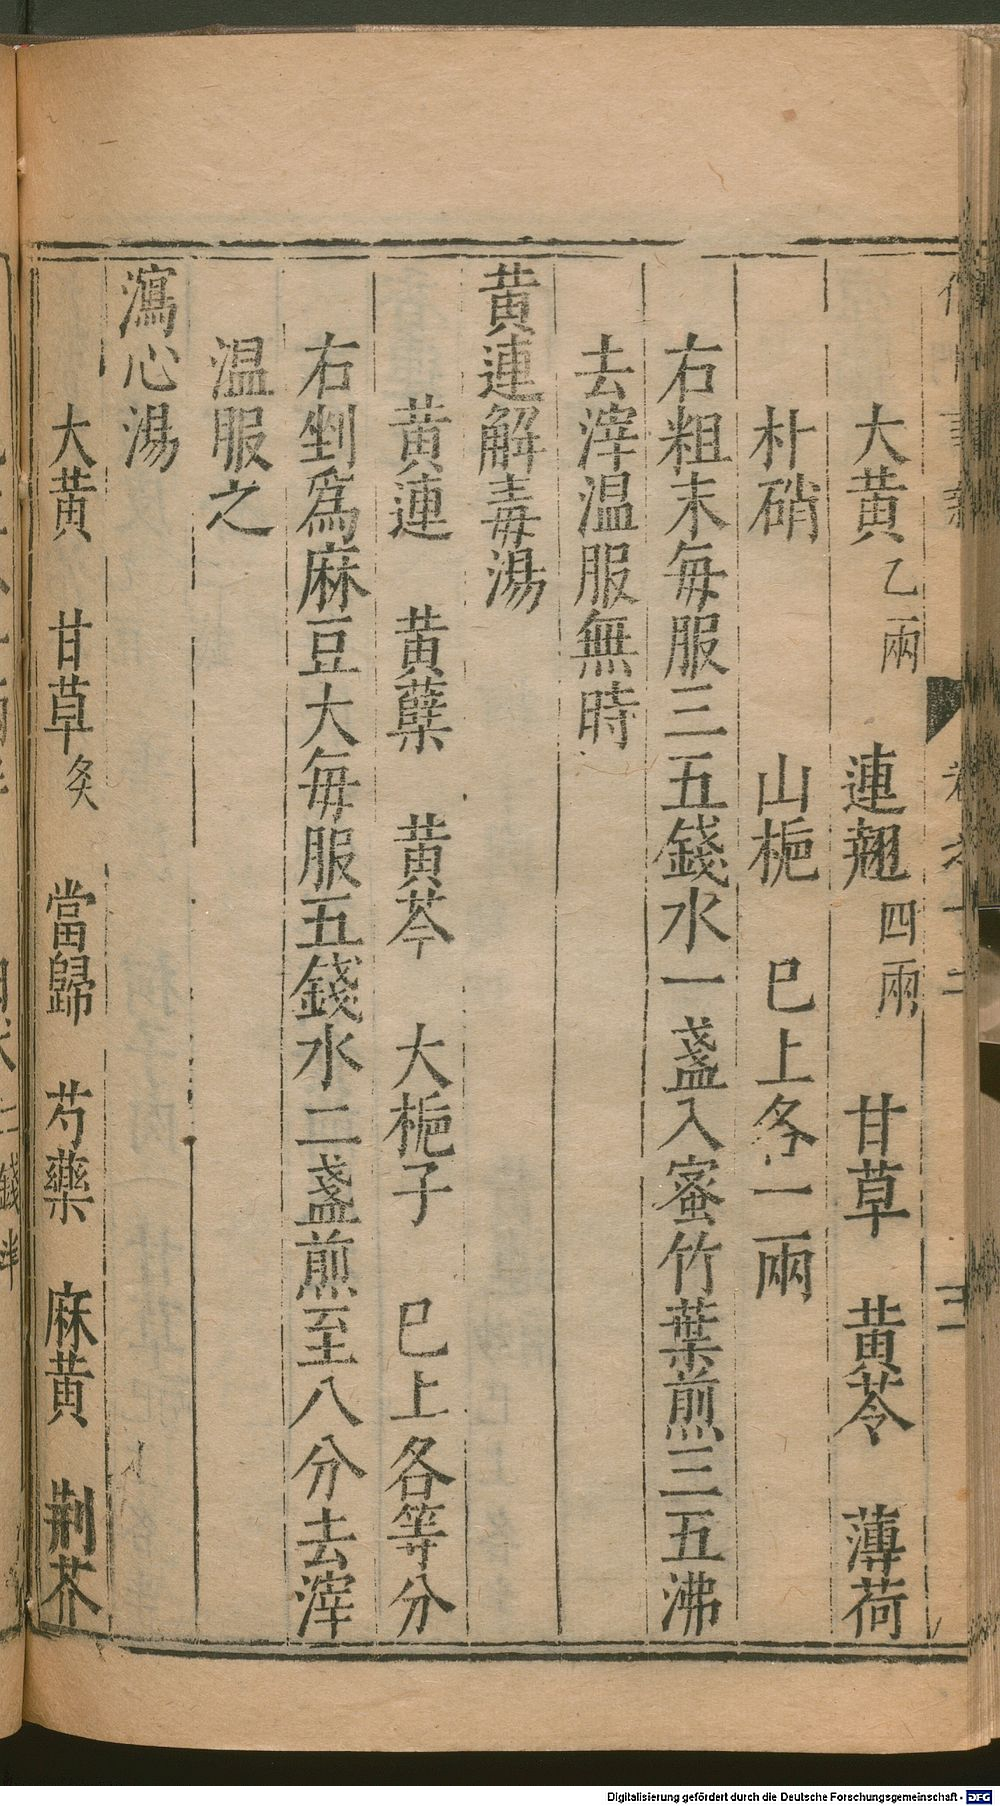 大黃乙兩 連翹四兩 甘草 黃芩 薄荷
朴硝 山梔 巳上各一兩
右粗末每服三五錢水一盞入蜜竹葉煎三五沸
去滓温服無時
黃連解毒湯
黃連 黃蘗 黃芩 大梔子 巳上各等分
右剉爲麻豆大每服五錢水二盞煎至八分去滓
温服之
瀉心湯
大黃 甘草炙 當歸 芍藥 麻黃 荆芥
Digitalisierung gefördert durch die Deutsche Forschungsgemeinschaft - DFG